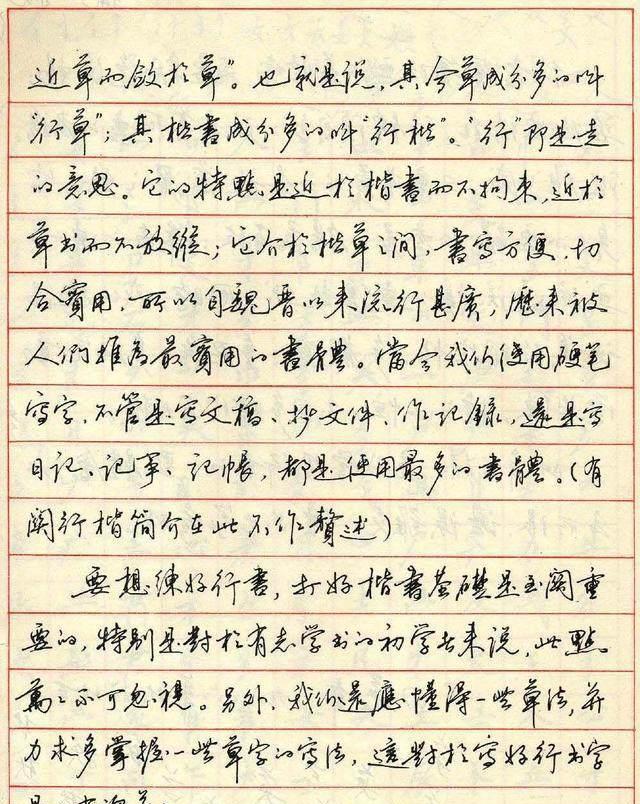 近草而斂於草”。也就是说，其今草成分多的叫
“行草”；其楷書成分多的叫“行楷”。“行”即是走
的意思。它的特點是近於楷書而不拘束，近於
草书而不放縱；它介於楷草之间，書寫方便，切
合實用，所以自魏晋以来流行甚廣，歷来被
人們推為最實用的書體。當今我们使用硬笔
寫字，不管是寫文稿、抄文件、作記錄，還是寫
日记、记事、记帳，都是使用最多的書體。（有
関行楷简介在此不作贅述）
要想練好行書，打好楷書基礎是至関重
要的，特别是對於有志学书的初学者来说，此點
萬萬不可忽視。另外，我们還應懂得一些草法，并
力求多掌握一些草字的寫法，這對於寫好行书字